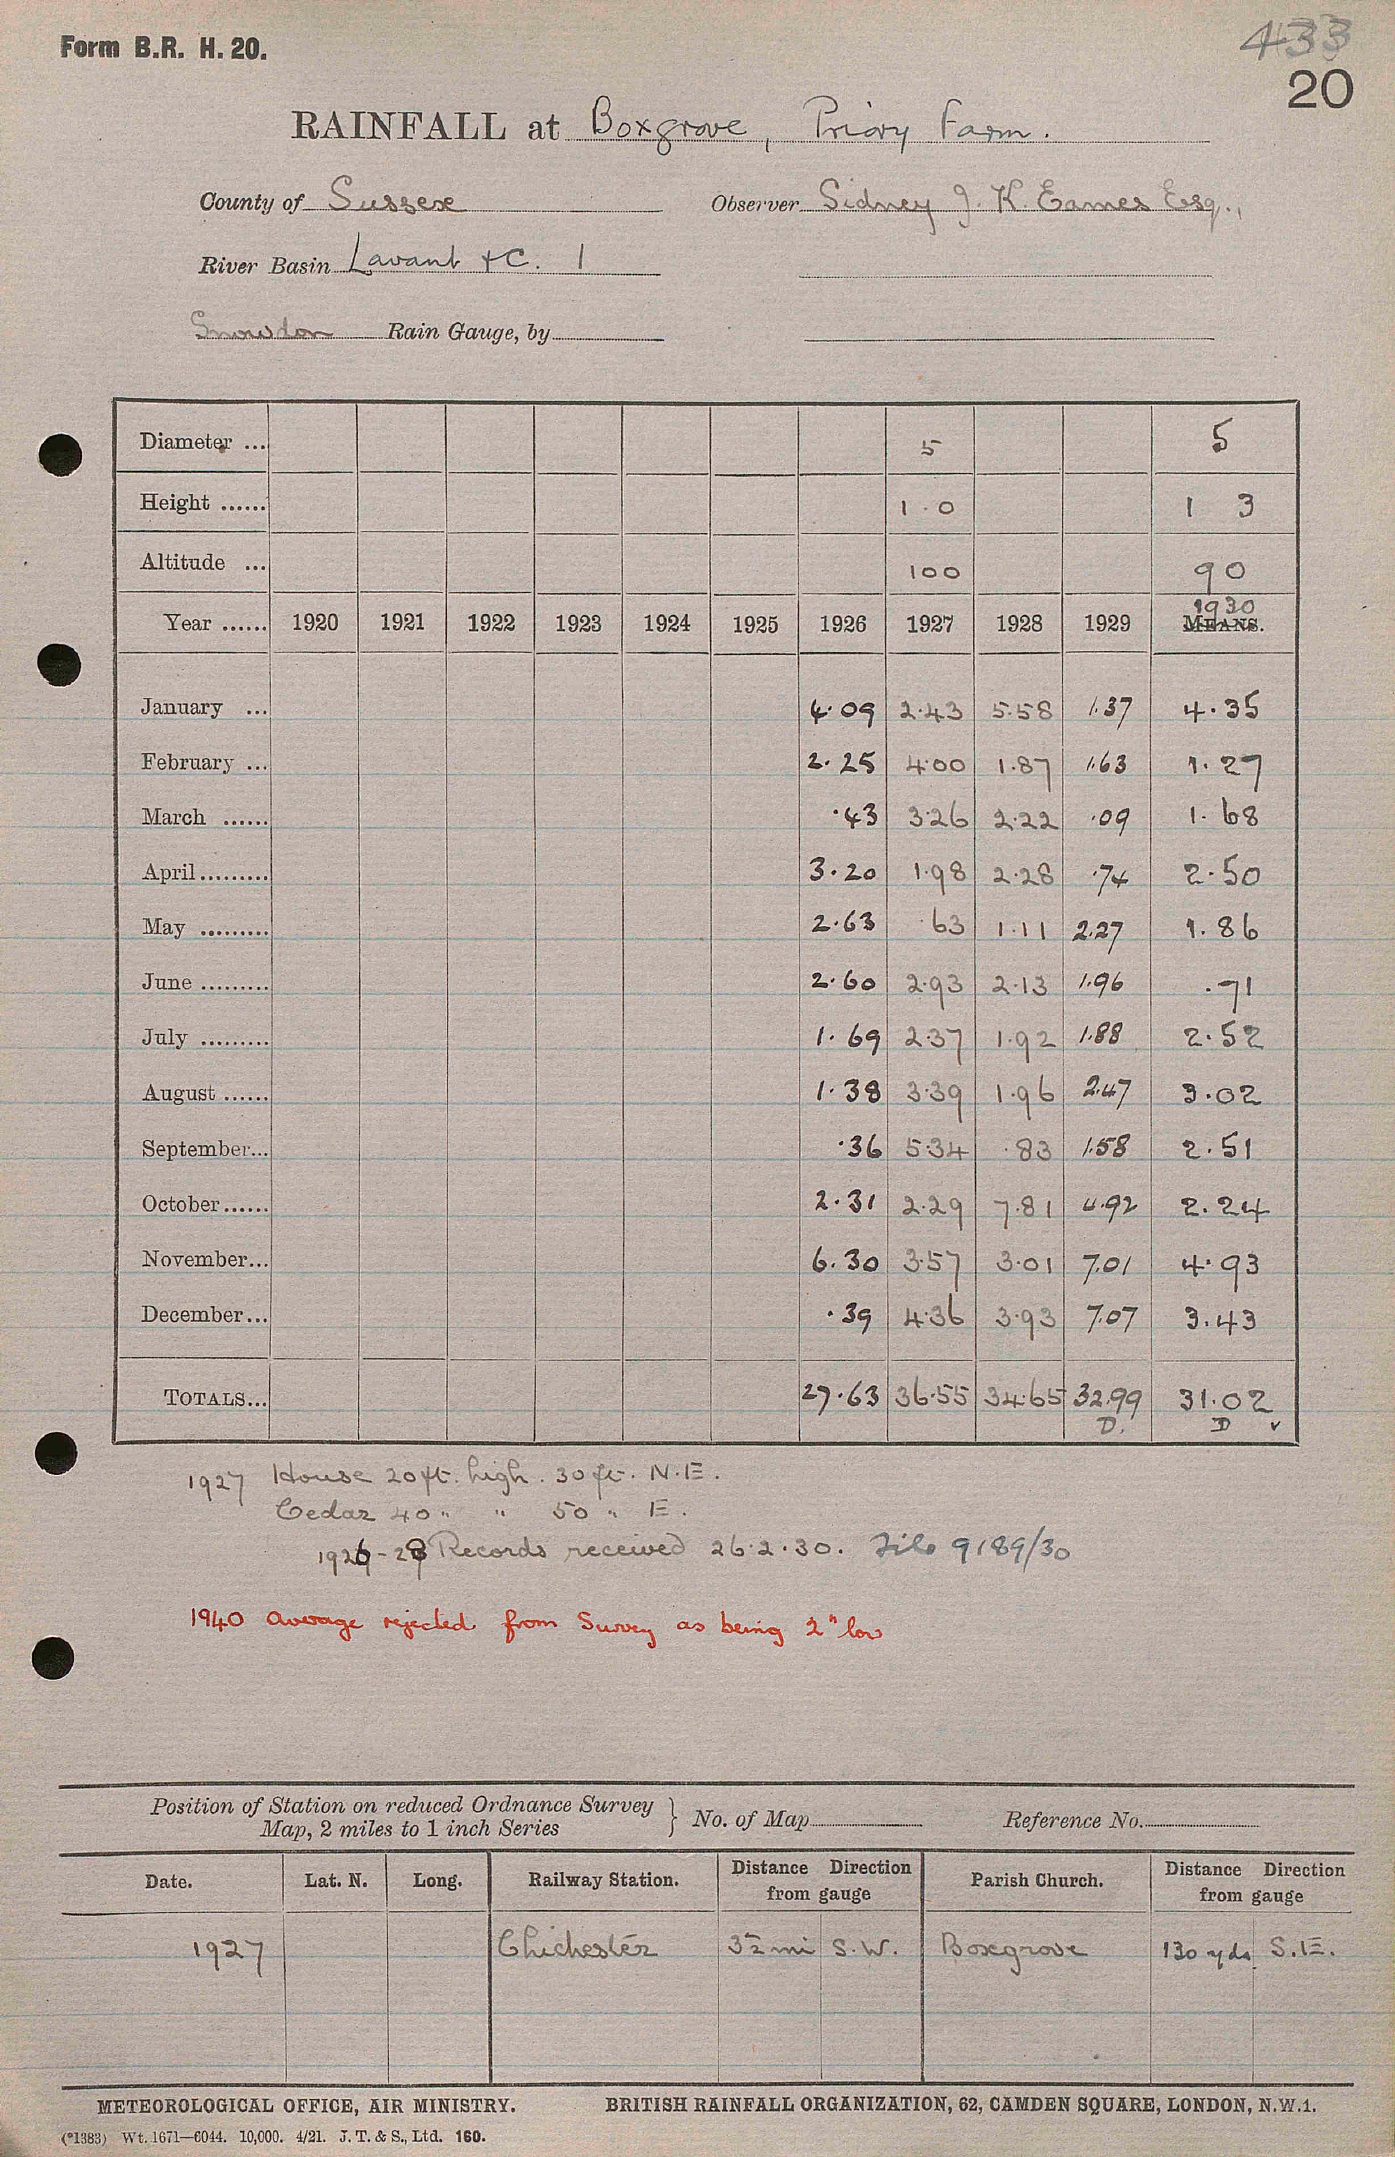 Form B.R. H. 20.
433
20
RAINFALL at Boxgrove, Priory Farm.
County of Sussex Observer Sidney J. K. Eames Esq.,
River Basin Lavant &C. 1
Snowdon Rain Gauge, by
Diameter ... 5 5
Height ...... 1.0 1 3
Altitude ... 100 90
1930
Year ...... 1920 1921 1922 1923 1924 1925 1926 1927 1928 1929 MEANS.
January ... 4.09 2.43 5.58 1.37 4.35
February ... 2.25 4.00 1.87 1.63 1.27
March ...... .43 3.26 2.22 .09 1.68
April ......... 3.20 1.98 2.28 .74 2.50
May ......... 2.63 .63 1.11 2.27 1.86
June ......... 2.60 2.93 2.13 1.96 .71
July ......... 1.69 2.37 1.92 1.88 2.52
August ...... 1.38 3.39 1.96 2.47 3.02
September... .36 5.34 .83 1.58 2.51
October...... 2.31 2.29 7.81 4.92 2.24
November... 6.30 3.57 3.01 7.01 4.93
December... .39 4.36 3.93 7.07 3.43
TOTALS... 27.63 36.55 34.65 32.99 31.02
D. D v
1927 House 20 ft. high. 30 ft. N.E.
Cedar 40 " " 50 " E.
1926-28 Records received 26.2.30. File 9189/30
1940 Average rejected from Survey as being 2" low
Position of Station on reduced Ordnance Survey
Map, 2 miles to 1 inch Series } No. of Map Reference No.
Date. Lat. N. Long. Railway Station. Distance Direction from gauge Parish Church. Distance Direction from gauge
1927 Chichester 3½ mi S.W. Boxgrove 130 yds. S.E.
METEOROLOGICAL OFFICE, AIR MINISTRY. BRITISH RAINFALL ORGANIZATION, 62, CAMDEN SQUARE, LONDON, N.W.1.
(*1383) Wt. 1671—6044. 10,000. 4/21. J. T. & S., Ltd. 160.